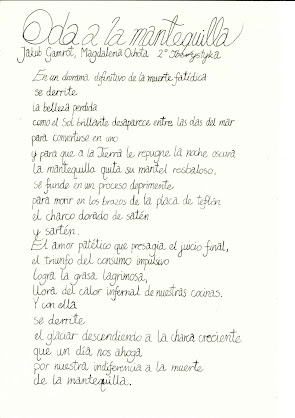 Oda a la mantequilla
Jakub Gamrot, Magdalena Ochota 2° Iberystyka
En un diorama difinitivo de la muerte fatídica
se derrite
la belleza perdida
como el Sol brillante desaparece entre las olas del mar
para convertirse en uno
y para que a la Tierra le repugne la noche oscura
la mantequilla quita su mantel resbaloso,
se funde en un proceso deprimente
para morir en los brazos de la placa de teflón
el charco dorado de satén
y sartén.
El amor patético que presagia el juicio final,
el triunfo del consumo impulsivo
logra la grasa lagrimosa,
llora del calor infernal de nuestras cocinas.
Y con ella
se derrite
el glaciar descendiendo a la charca creciente
que un día nos ahoga
por nuestra indiferencia a la muerte
de la mantequilla.